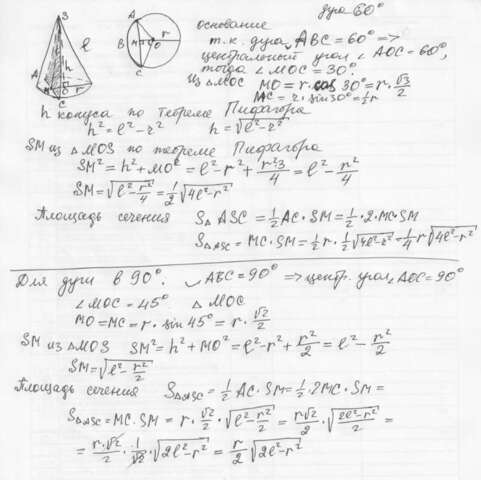 дуга 60°
основание
т.к. дуга ◡ABC = 60° =>
центральный угол ∠AOC = 60°,
тогда ∠MOC = 30°.
Из △MOC MO = r·cos 30° = r·√3/2
MC = r·sin30° = 1/2 r
S
ℓ
h
A
M
O
r
C
A
B
M
O
r
C
h конуса по теореме Пифагора
h² = ℓ² - r² h = √(ℓ² - r²)
SM из △MOS по теореме Пифагора
SM² = h² + MO² = ℓ² - r² + r²3/4 = ℓ² - r²/4
SM = √(ℓ² - r²/4) = 1/2 √(4ℓ² - r²)
Площадь сечения S△ASC = 1/2 AC · SM = 1/2 · 2·MC·SM
S△ASC = MC·SM = 1/2 r · 1/2 √(4ℓ² - r²) = 1/4 r √(4ℓ² - r²)
Для дуги в 90°. ◡ABC = 90° => центр. угол ∠AOC = 90°
∠MOC = 45° △MOC
MO = MC = r · sin 45° = r · √2/2
SM из △MOS SM² = h² + MO² = ℓ² - r² + r²/2 = ℓ² - r²/2
SM = √(ℓ² - r²/2)
Площадь сечения S△ASC = 1/2 AC · SM = 1/2 · 2MC · SM =
S△ASC = MC · SM = r · √2/2 · √(ℓ² - r²/2) = r√2/2 · √((2ℓ² - r²)/2) =
= r·√2/2 · 1/√2 · √(2ℓ² - r²) = r/2 √(2ℓ² - r²)